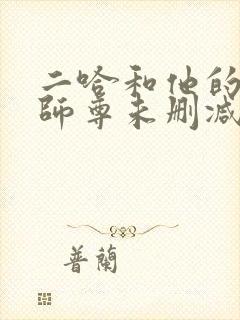 二哈和他的
師尊未删减
普蘭